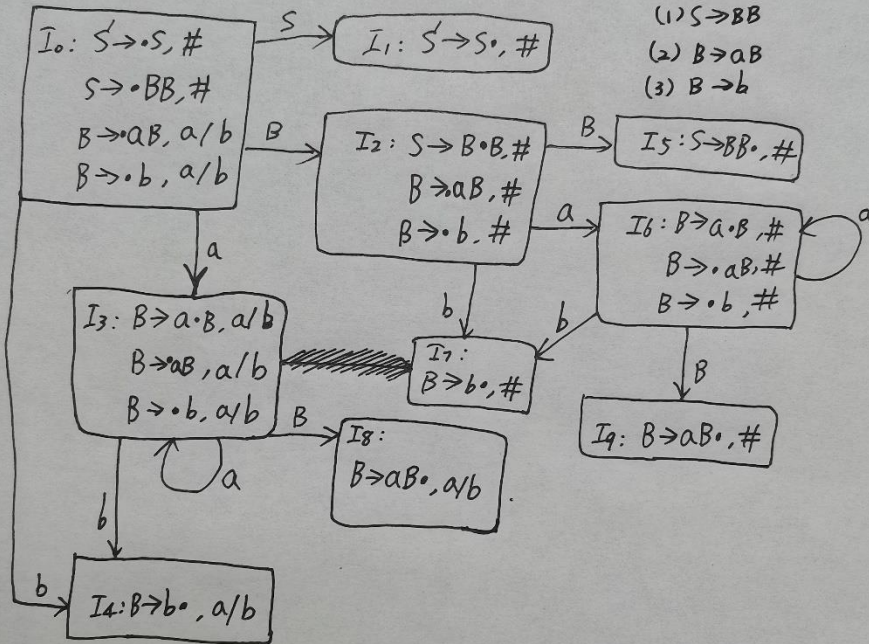 (1) S→BB
(2) B→aB
(3) B→b
I0: S'→·S, #
S→·BB, #
B→·aB, a/b
B→·b, a/b
S
I1: S'→S·, #
B
I2: S→B·B, #
B→·aB, #
B→·b, #
B
I5: S→BB·, #
a
I6: B→a·B, #
B→·aB, #
B→·b, #
a
a
I3: B→a·B, a/b
B→·aB, a/b
B→·b, a/b
b
b
I7:
B→b·, #
B
I9: B→aB·, #
B
I8:
B→aB·, a/b
a
b
b
I4: B→b·, a/b